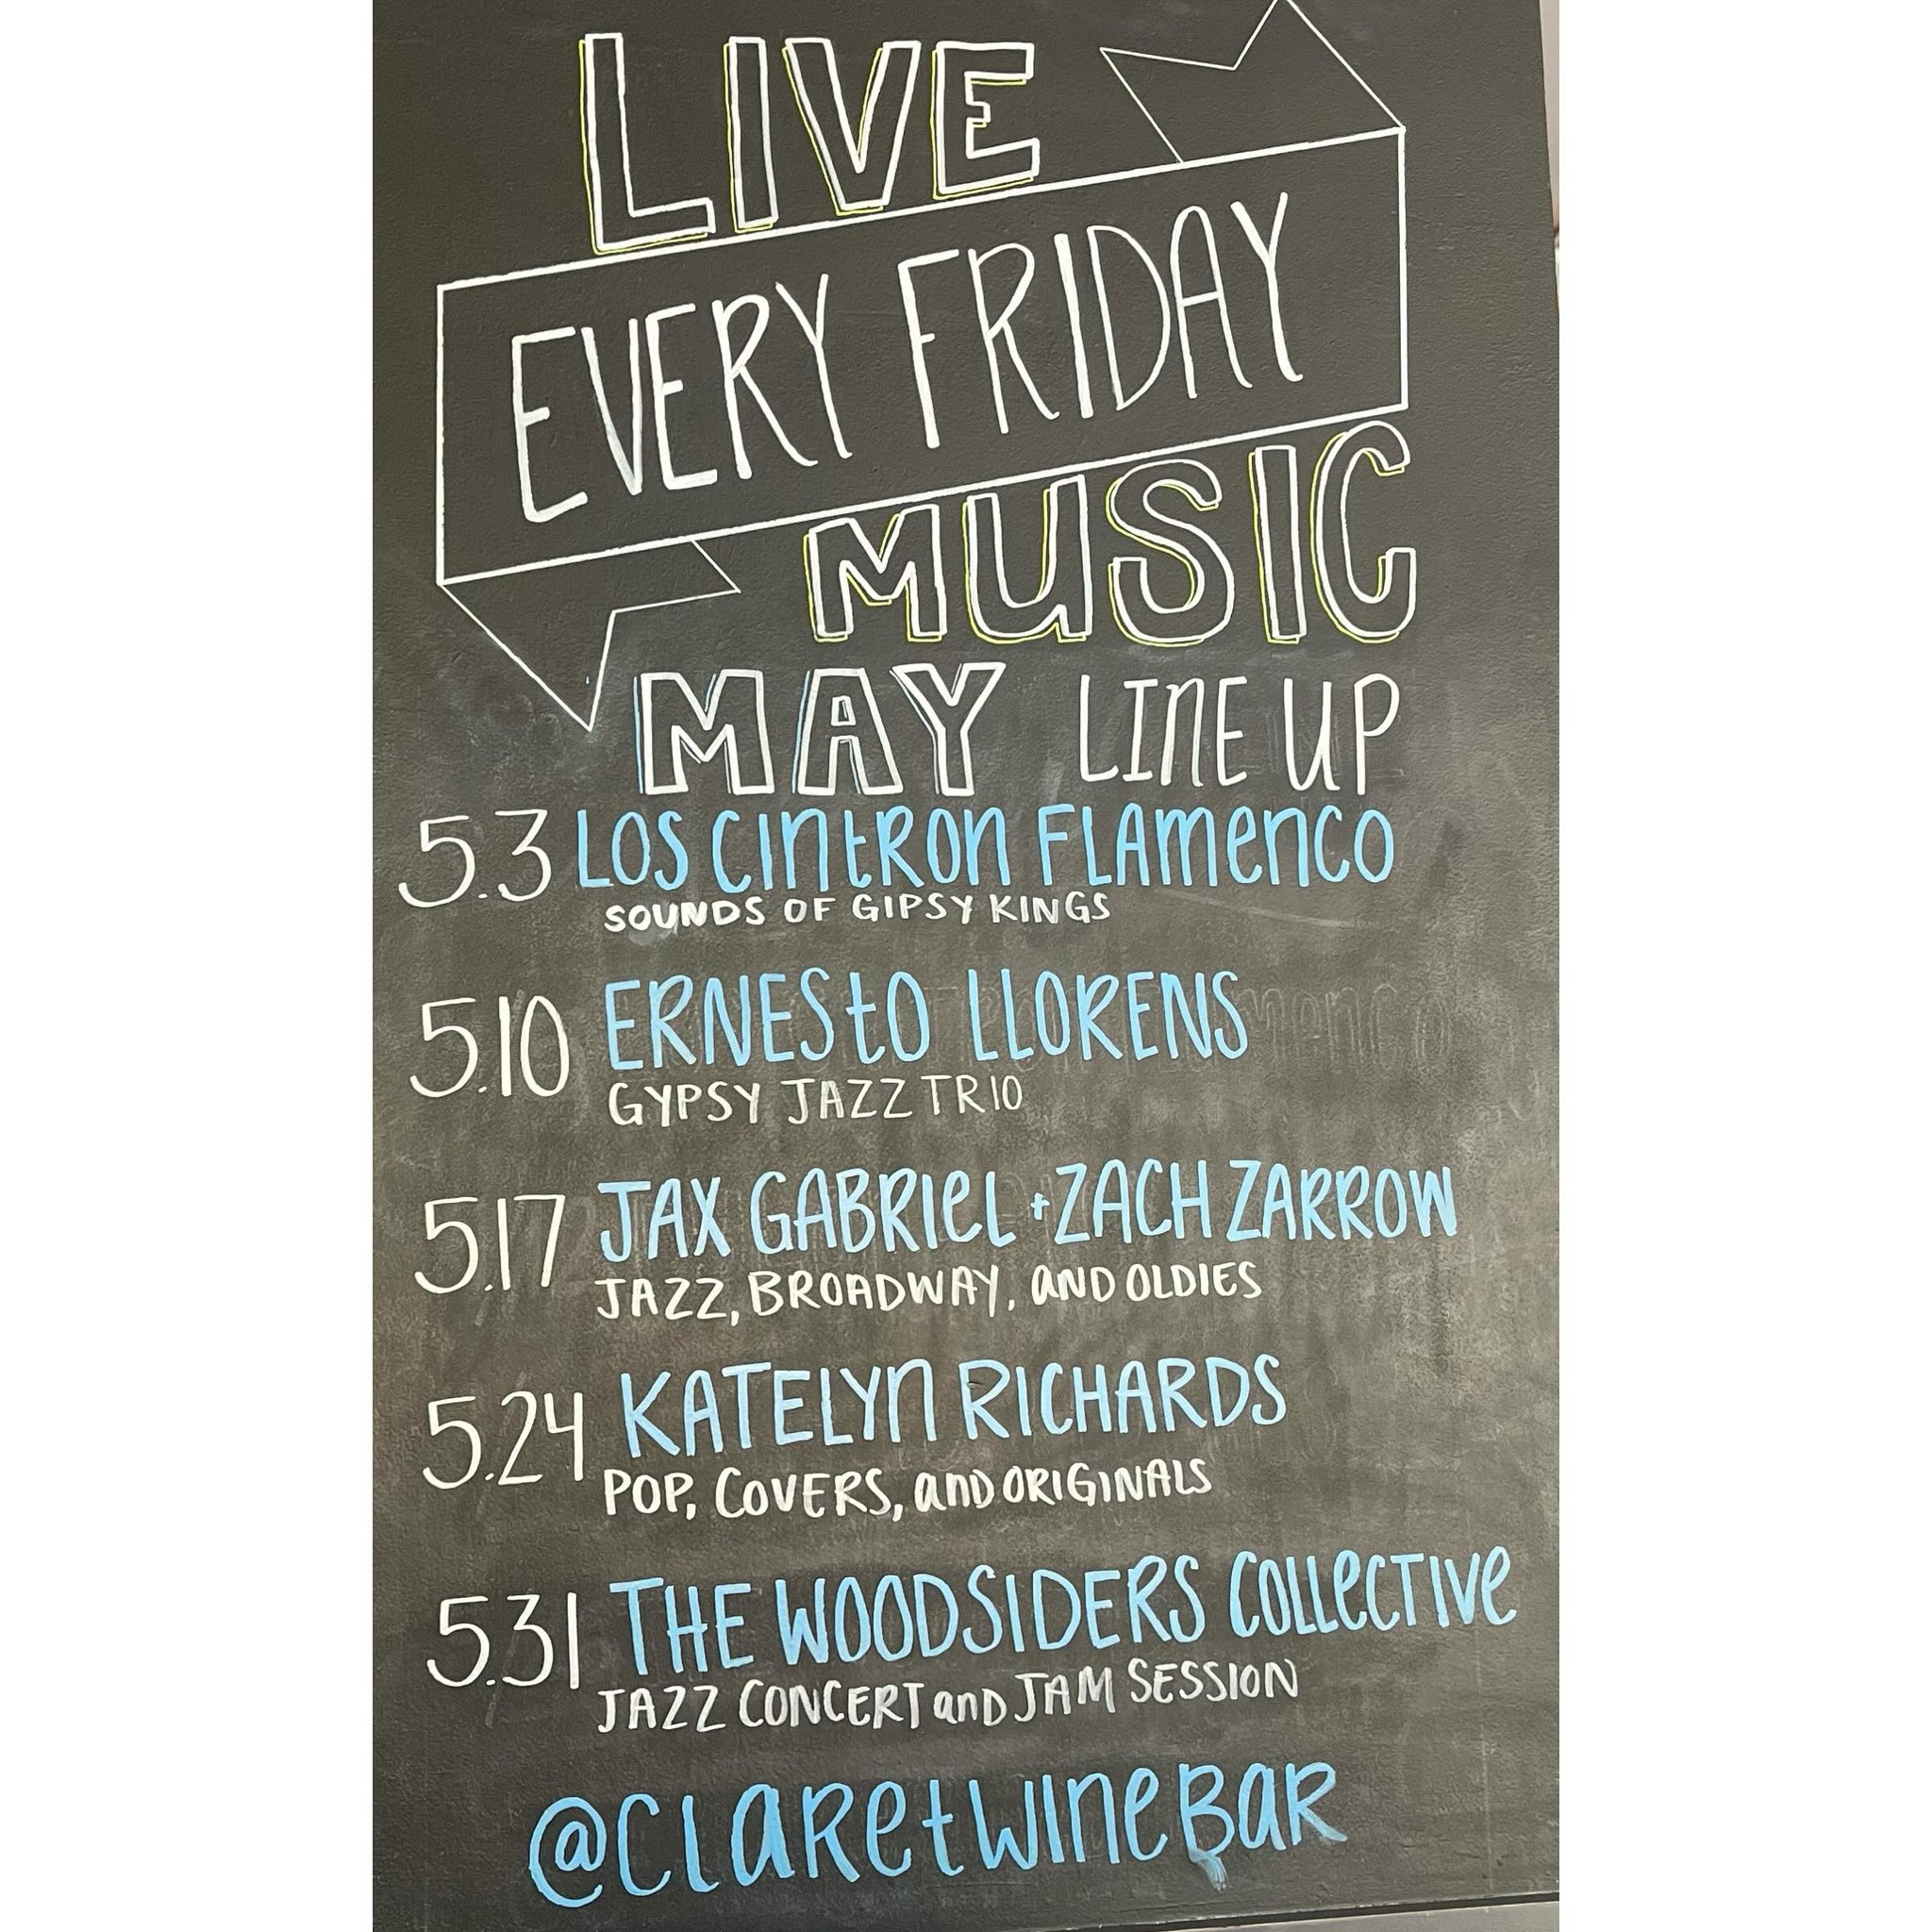 LIVE
EVERY FRIDAY
MUSIC
MAY LINE UP
5.3 LOS CINTRON FLAMENCO
SOUNDS OF GIPSY KINGS
5.10 ERNESTO LLORENS
GYPSY JAZZ TRIO
5.17 JAX GABRIEL + ZACH ZARROW
JAZZ, BROADWAY, AND OLDIES
5.24 KATELYN RICHARDS
POP, COVERS, AND ORIGINALS
5.31 THE WOODSIDERS COLLECTIVE
JAZZ CONCERT AND JAM SESSION
@CLARETWINEBAR